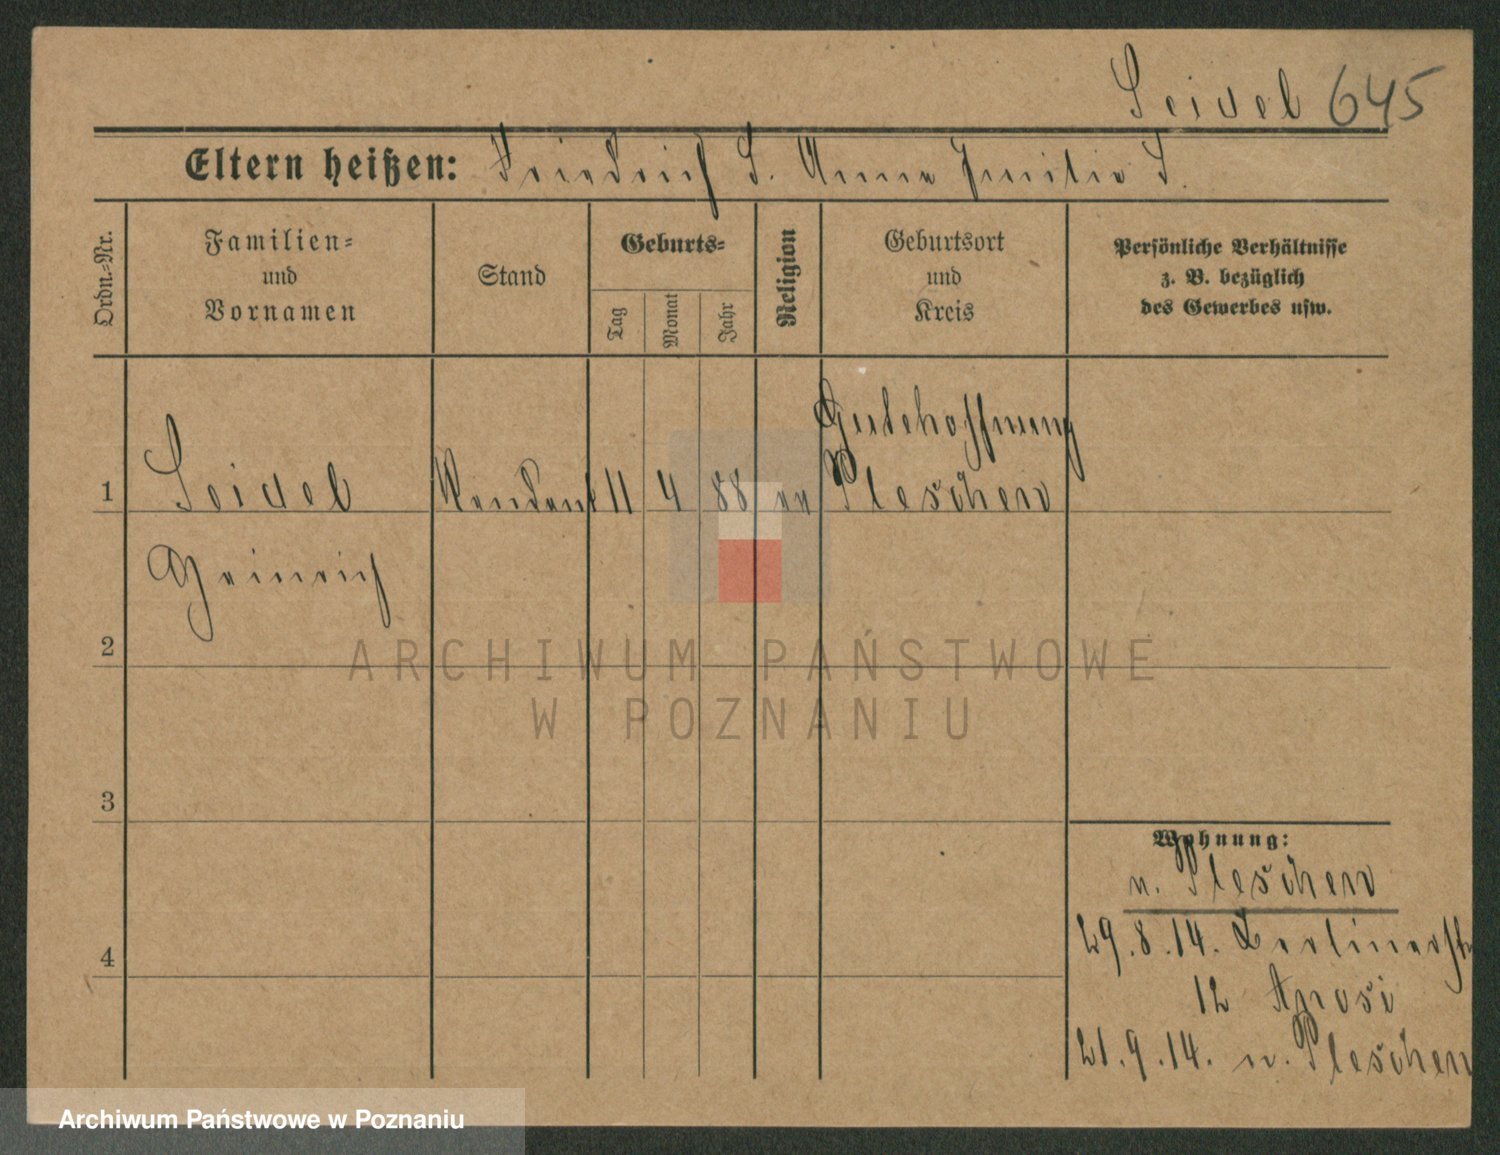 Seidel 645
Eltern heißen: Friedrich S. Anna Emilie S.
Ordn.=Nr.
Familien=
und
Vornamen
Stand
Geburts=
Tag
Monat
Jahr
Religion
Geburtsort
und
Kreis
Persönliche Verhältnisse
z. B. bezüglich
des Gewerbes usw.
Gutehoffnung
1 Seidel Rendant 11 4 88 ev Pleschen
Heinrich
2
ARCHIWUM PAŃSTWOWE
W POZNANIU
3
Wohnung:
n. Pleschen
4
29.8.14. Berlinerstr
12
21.9.14. n. Pleschen
Archiwum Państwowe w Poznaniu